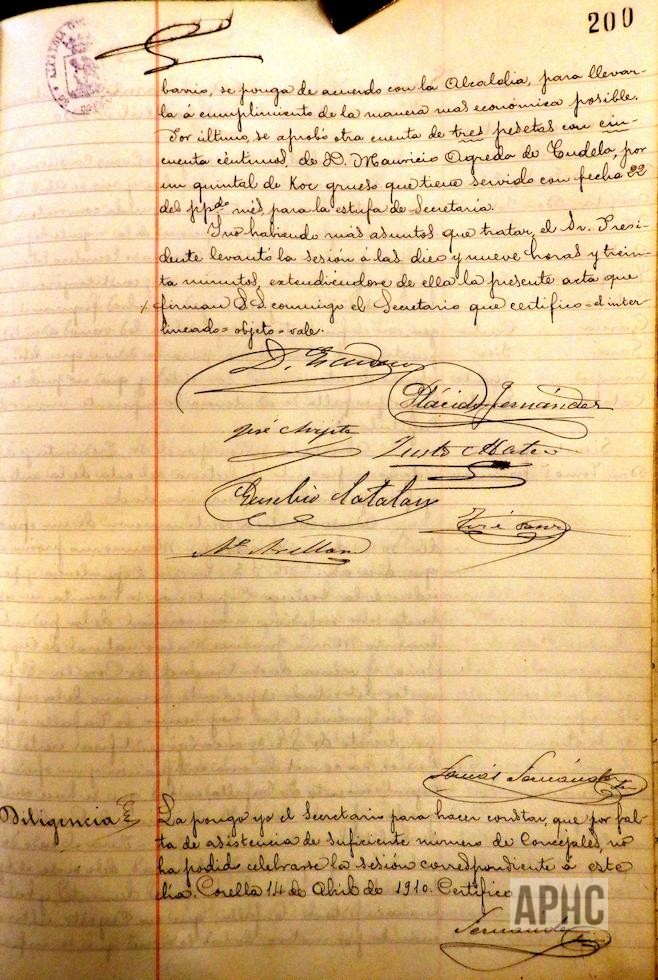 200
barrio, se ponga de acuerdo con la Alcaldia, para llevar-
la á cumplimiento de la manera mas económica posible.
Por último, se aprobó otra cuenta de tres pesetas con cin-
cuenta céntimos, de D. Mauricio Agreda de Tudela, por
un quintal de Kok grueso que tiene servido con fecha 22
del ppdo mes, para la estufa de Secretaría.
Y no habiendo más asuntos que tratar, el Sr. Presi-
dente levantó la sesión á las diez y nueve horas y trein-
ta minutos, extendiendose de ella la presente acta que
firman S.S. conmigo el Secretario que certifico = el inter-
lineado = objeto = vale.
Plácido Fernández
José
Justo Mateo
Eusebio Catalan
José Sanz
M. Arellano
Diligencia
La pongo yo el Secretario para hacer constar, que por fal-
ta de asistencia de suficiente número de Concejales, no
ha podido celebrarse la sesión correspondiente á este
día. Corella 14 de Abril de 1910. Certifico
APHC